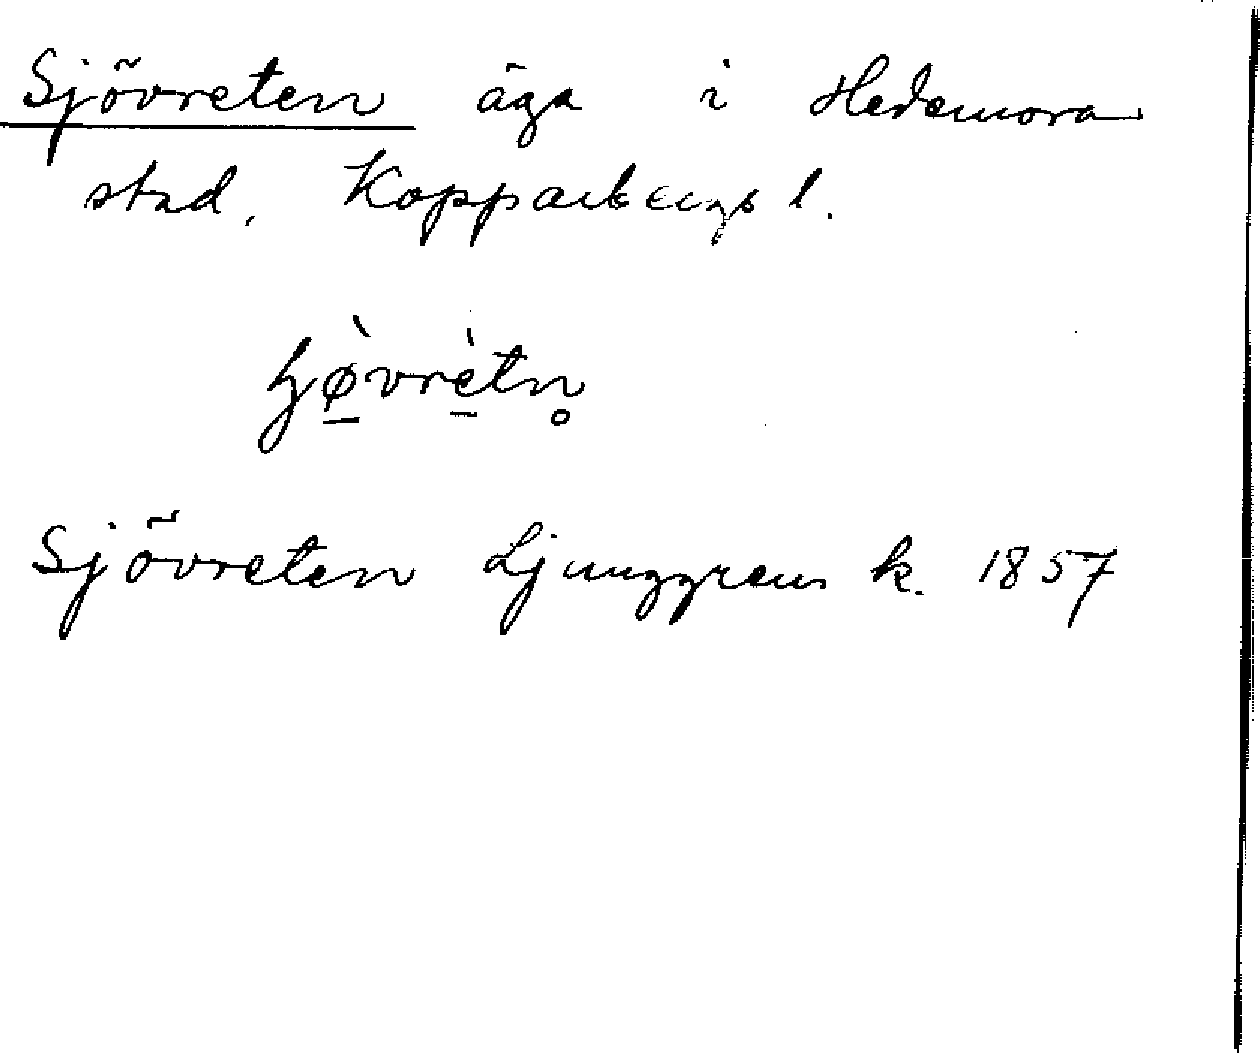 Sjövreten äga i Hedemora
stad, Kopparbergs l.
ɧø̠̀vrè̠tn̥
Sjövreten Ljunggrens k. 1857